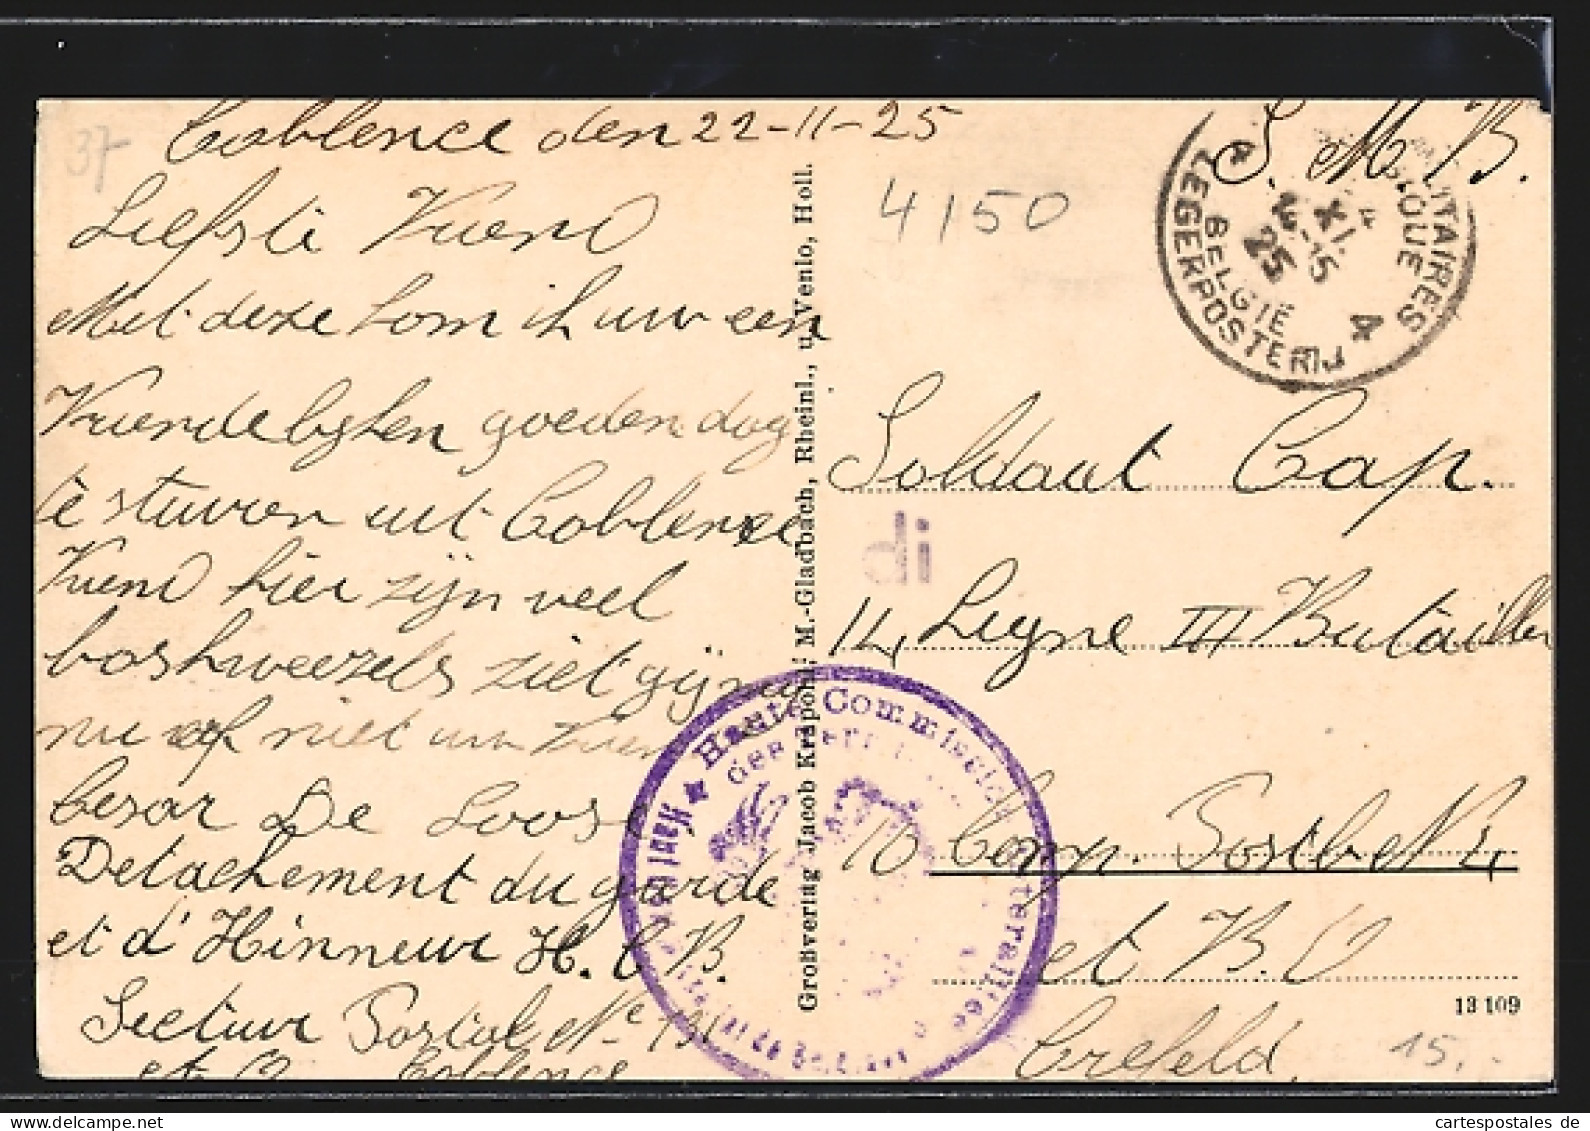 37
Coblence den 22-11-25
Liefsti Vriend
Met deze kom ik uw een
Vriendelyken goeden dag
te sturen uit Coblence
Vriend hier zijn veel
boshweezels ziet gij
nu of niet uw Vriend
Cesar De Loose
Detachement du garde
et d' Hinneur H. C B.
Secteur Postal N° 
et Coblence
Großvertag Jacob Krapohl, M.-Gladbach, Rheinl., u. Venlo, Holl.
4150
S. M. B.
MILITAIRES
BELGIQUE
4
XI
25
BELGIË
LEGERPOSTERIJ
4
Soldaut Cap.
di
14 Ligne III Batailler
10 Comp. Postbe N 4
et B. O
Crefeld
Haute Commission Interalliée
des Territoires
13 109
15.-
cartespostales de